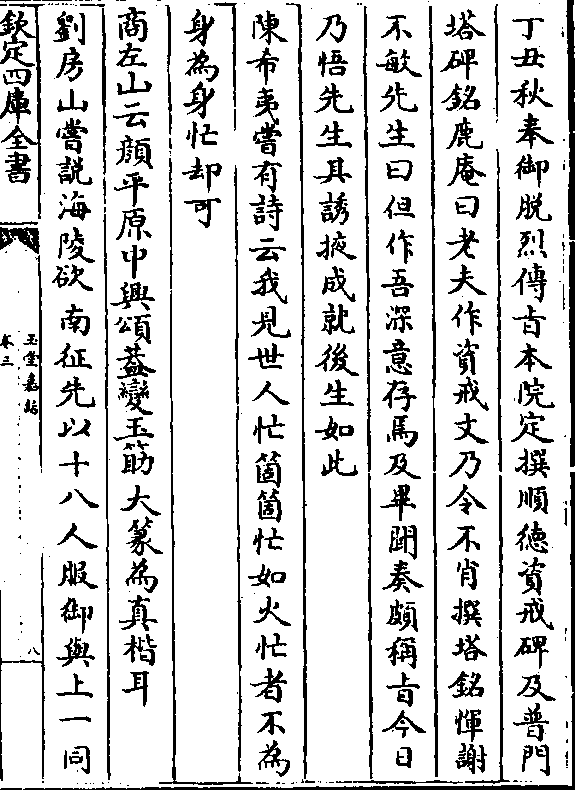 丁丑秋奉御脱烈傳㫖本院定撰順徳資戒碑及普門
塔碑銘鹿庵曰老夫作資戒文乃令不肖撰塔銘惲謝
不敏先生曰但作吾深意存焉及畢聞奏頗稱㫖今日
乃悟先生其誘掖成就後生如此
陳希夷嘗有詩云我見世人忙箇箇忙如火忙者不為
身為身忙却可
商左山云顔平原中興頌葢變玉筯大篆為真楷耳
劉房山嘗説海陵欲南征先以十八人服御與上一同
欽定四庫全書
玉堂嘉話
卷三
八